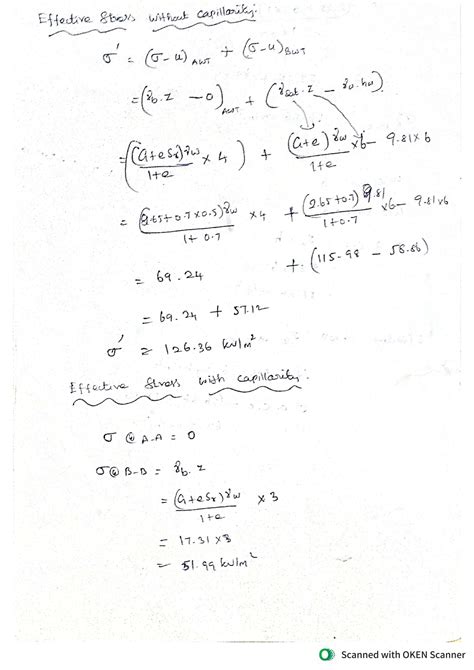 Effective Stress without capillarity:
σ' = (σ-u)AWT + (σ-u)BWT
= (γb.z - 0)AWT + (γsat.z - γω.hω)
= ((G+eSr)γω / 1+e × 4) + (G+e)γω / 1+e × 6 - 9.81×6
= (2.65+0.7×0.5)γω / 1+0.7 × 4 + (2.65+0.7)9.81 / 1+0.7 × 6 - 9.81×6
= 69.24 + (115.98 - 58.86)
= 69.24 + 57.12
σ' = 126.36 kN/m²
Effective Stress with capillarity:
σ @ A-A = 0
σ @ B-B = γb.z
= (G+eSr)γω / 1+e × 3
= 17.31×3
= 51.99 kN/m²
Scanned with OKEN Scanner